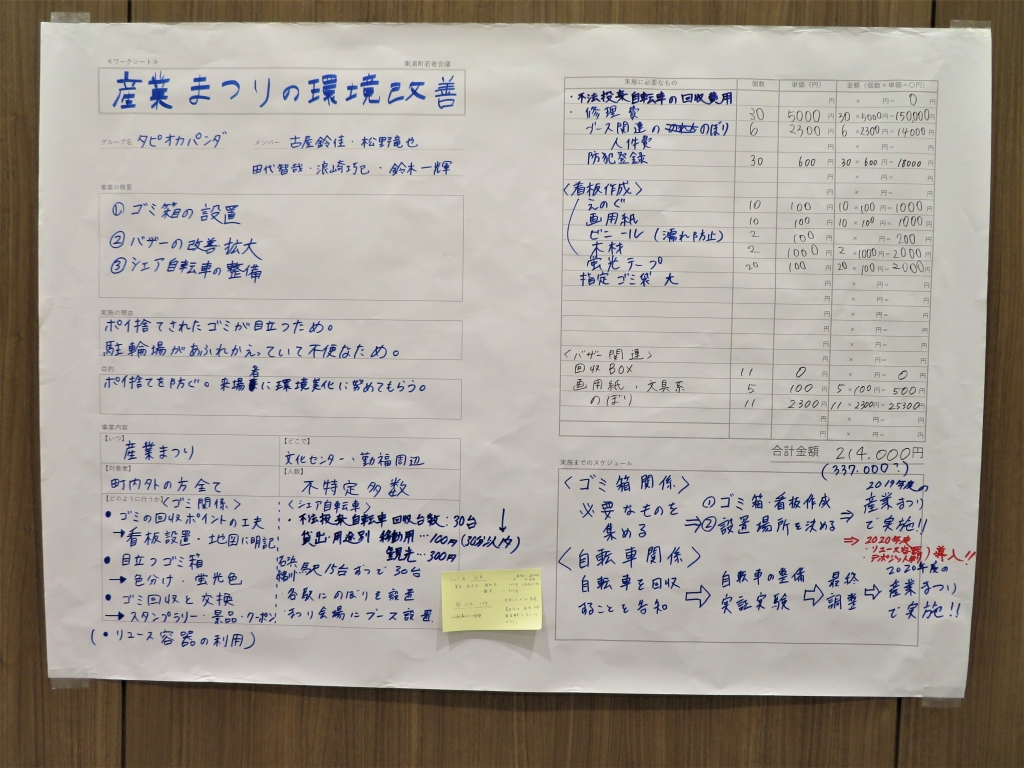 ≪ワークシート≫
東浦町若者会議
産業まつりの環境改善
グループ名 タピオカパンダ
メンバー 古屋鈴佳・松野竜也
田代智哉・浪崎巧巳・鈴木一輝
事業の概要
① ゴミ箱の設置
② バザーの改善拡大
③ シェア自転車の整備
実施の理由
ポイ捨てされたゴミが目立つため。
駐輪場があふれかえっていて不便なため。
目的
ポイ捨てを防ぐ。来場者に環境美化に努めてもらう。
事業内容
【いつ】
産業まつり
【どこで】
文化センター・勤福周辺
【対象者】
町内外の方全て
【人数】
不特定多数
【どのように行うか】
<ゴミ関係>
● ゴミの回収ポイントの工夫
→看板設置・地図に明記
● 目立つゴミ箱
→色分け・蛍光色
● ゴミ回収と交換
→スタンプラリー・景品・クーポン
(・リユース容器の利用)
<シェア自転車>
・不法投棄自転車回収台数:30台
貸出・用途別 移動用…100円(30分以内)
観光…300円
駅に15台ずつで30台
各駅にのぼりを設置
まつり会場にブース設置
実施に必要なもの 個数 単価(円) 金額(個数×単価=〇円)
・不法投棄自転車の回収費用 円 × 円= 0 円
・修理費 30 5000円 30×5000円=150000円
ブース関連ののぼり 6 2300円 6×2300円=14000円
人件費 円 × 円= 円
防犯登録 30 600円 30×600円=18000円
円 × 円= 円
<看板作成> 円 × 円= 円
えのぐ 10 100円 10×100円=1000円
画用紙 10 100円 10×100円=1000円
ビニール(濡れ防止) 2 100円 × 円=200円
木材 2 1000円 2×1000円=2000円
蛍光テープ 20 100円 20×100円=2000円
指定ゴミ袋 大 円 × 円= 円
円 × 円= 円
円 × 円= 円
円 × 円= 円
円 × 円= 円
<バザー関連> 円 × 円= 円
回収BOX 11 0円 × 円=0円
画用紙・文具系 5 100円 5×100円=500円
のぼり 11 2300円 11×2300円=25300円
円 × 円= 円
円 × 円= 円
合計金額 214,000円
(337,000?)
実施までのスケジュール
<ゴミ箱関係>
必要なものを
集める
⇒
①ゴミ箱・看板作成
②設置場所を決める
⇒
2019年度の
産業まつり
で実施!!
⇒2020年度
・リユース容器
・デポジット制
導入!!
<自転車関係>
自転車を回収
することを告知
⇨
自転車の整備
実証実験
⇨
最終
調整
⇨
2020年度の
産業まつり
で実施!!